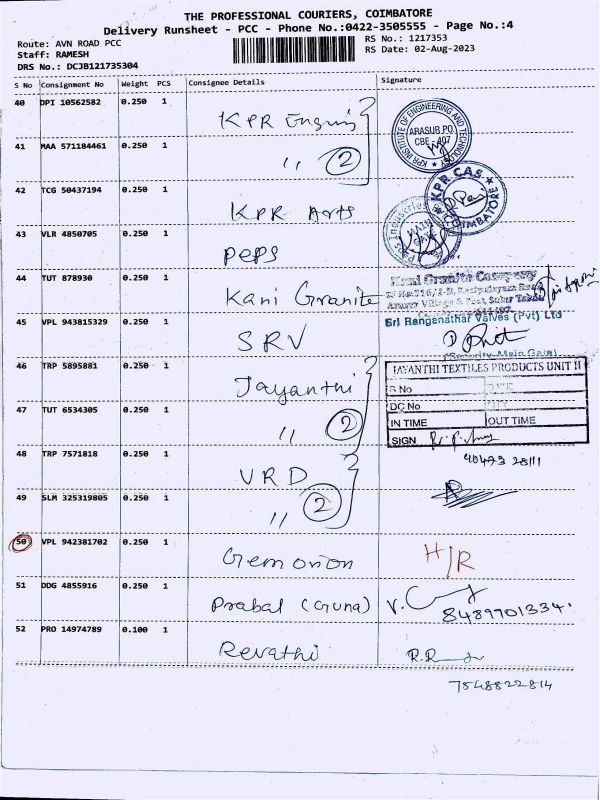 THE PROFESSIONAL COURIERS, COIMBATORE
Delivery Runsheet - PCC - Phone No.:0422-3505555 - Page No.:4
Route: AVN ROAD PCC
RS No.: 1217353
Staff: RAMESH
RS Date: 02-Aug-2023
DRS No.: DCJB121735304
S No Consignment No Weight PCS Consignee Details Signature
40 DPI 10562582 0.250 1 KPR Engung
KPR INSTITUTE OF ENGINEERING AND TECHNOLOGY
ARASUR.PO.
CBE 407
41 MAA 571184461 0.250 1 " 2
42 TCG 50437194 0.250 1 KPR Arts
KPR CAS
COIMBATORE
43 VLR 4850705 0.250 1 Peps
Peps Industries
MAIN
GATE
44 TUT 878930 0.250 1 Kani Granite
Kani Granite Company
45 VPL 943815329 0.250 1 SRV
Sri Rangenathar Valves (Pvt) Ltd
(Security Main Gate)
46 TRP 5895881 0.250 1 Jayanthi
JAYANTHI TEXTILES PRODUCTS UNIT II
S No DATE
DC No
IN TIME OUT TIME
SIGN
47 TUT 6534305 0.250 1 " 2
48 TRP 7571818 0.250 1 VRD
49 SLM 325319805 0.250 1 " 2
50 VPL 942381702 0.250 1 Gemorion H/R
51 DDG 4855916 0.250 1 Prabal (Guna)
8489701334
52 PRO 14974789 0.100 1 Revathi
7548822814